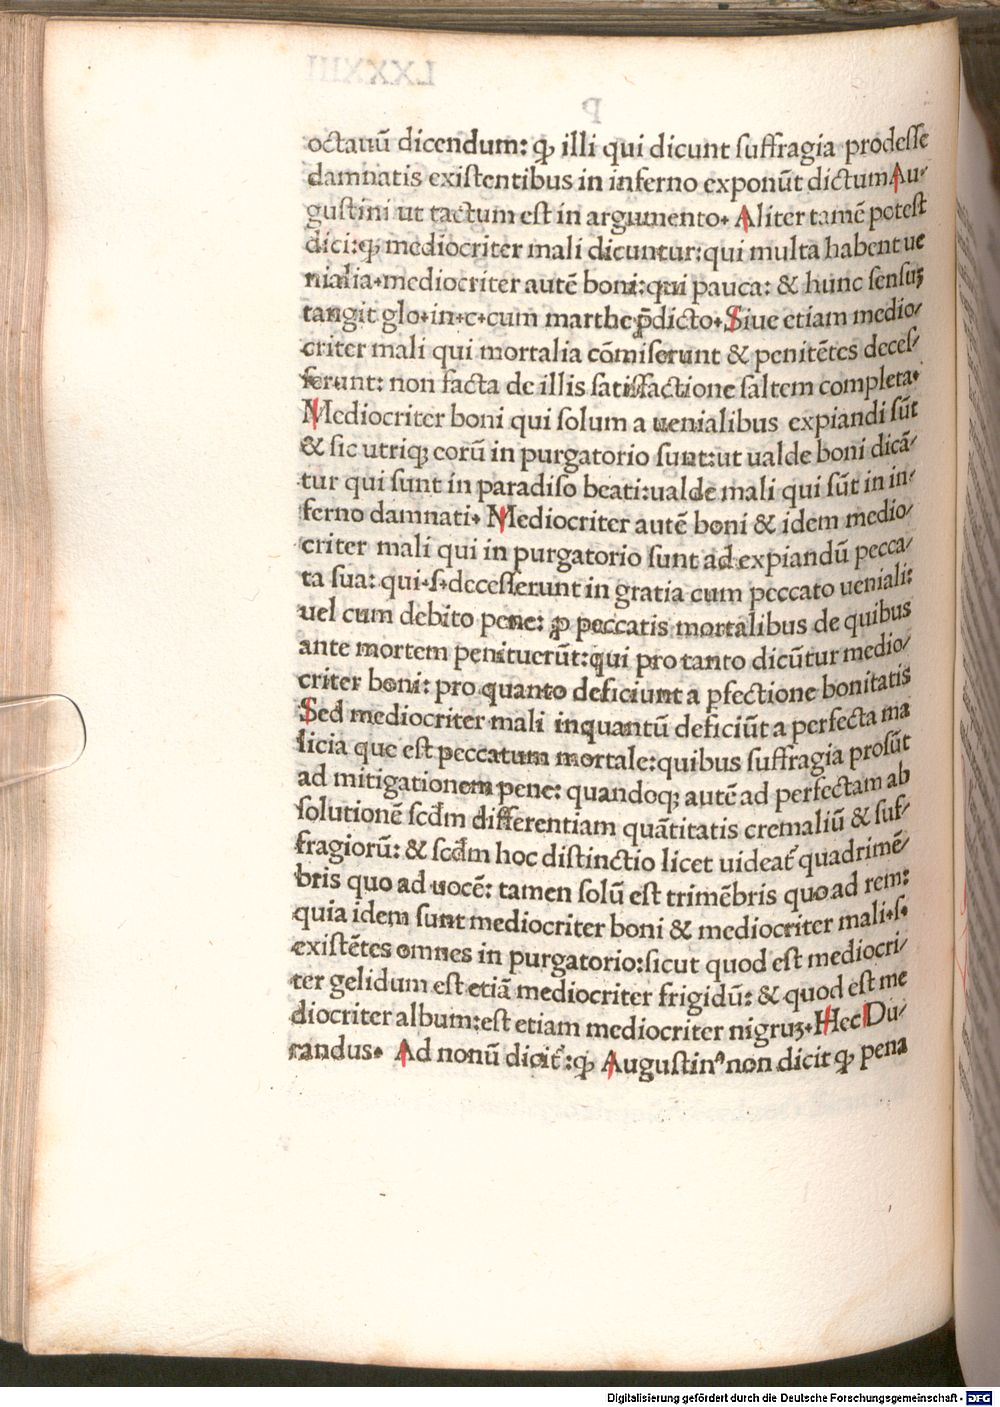 octauũ dicendum: ꝙ illi qui dicunt ſuffragia prodeſſe
damnatis exiſtentibus in inferno exponũt dictum Au⸗
guſtini ut tactum eſt in argumento. Aliter tamẽ poteſt
dici: ꝙ mediocriter mali dicuntur: qui multa habent ue
nialia. mediocriter autẽ boni: qui pauca: & hunc ſenſuꝫ
tangit glo. in. c. cum marthe p̄dicto. Siue etiam medio⸗
criter mali qui mortalia cõmiſerunt & penitẽtes deceſ⸗
ſerunt: non facta de illis ſatiſfactione ſaltem completa.
Mediocriter boni qui ſolum a uenialibus expiandi ſũt
& ſic utriqꝫ eorũ in purgatorio ſunt: ut ualde boni dicã⸗
tur qui ſunt in paradiſo beati: ualde mali qui ſũt in in⸗
ferno damnati. Mediocriter autẽ boni & idem medio⸗
criter mali qui in purgatorio ſunt ad expiandũ pecca⸗
ta ſua: qui. ſ. deceſſerunt in gratia cum peccato ueniali:
uel cum debito pene: ꝓ peccatis mortalibus de quibus
ante mortem penituerũt: qui pro tanto dicũtur medio⸗
criter boni: pro quanto deficiunt a ꝑfectione bonitatis
Sed mediocriter mali inquantũ deficiũt a perfecta ma
licia que eſt peccatum mortale: quibus ſuffragia proſũt
ad mitigationem pene: quandoqꝫ autẽ ad perfectam ab
ſolutionẽ ſcd̃m differentiam quãtitatis cremaliũ & ſuf⸗
fragiorũ: & ſcd̃m hoc diſtinctio licet uideat᷑ quadrimẽ⸗
bris quo ad uocẽ: tamen ſolũ eſt trimẽbris quo ad rem:
quia idem ſunt mediocriter boni & mediocriter mali. ſ.
exiſtẽtes omnes in purgatorio: ſicut quod eſt mediocri⸗
ter gelidum eſt etiã mediocriter frigidũ: & quod eſt me
diocriter album: eſt etiam mediocriter nigruꝫ. Hec Du⸗
randus. Ad nonũ dicit᷑: ꝙ Auguſtinꝰ non dicit ꝙ pena
Digitalisierung gefördert durch die Deutsche Forschungsgemeinschaft - DFG